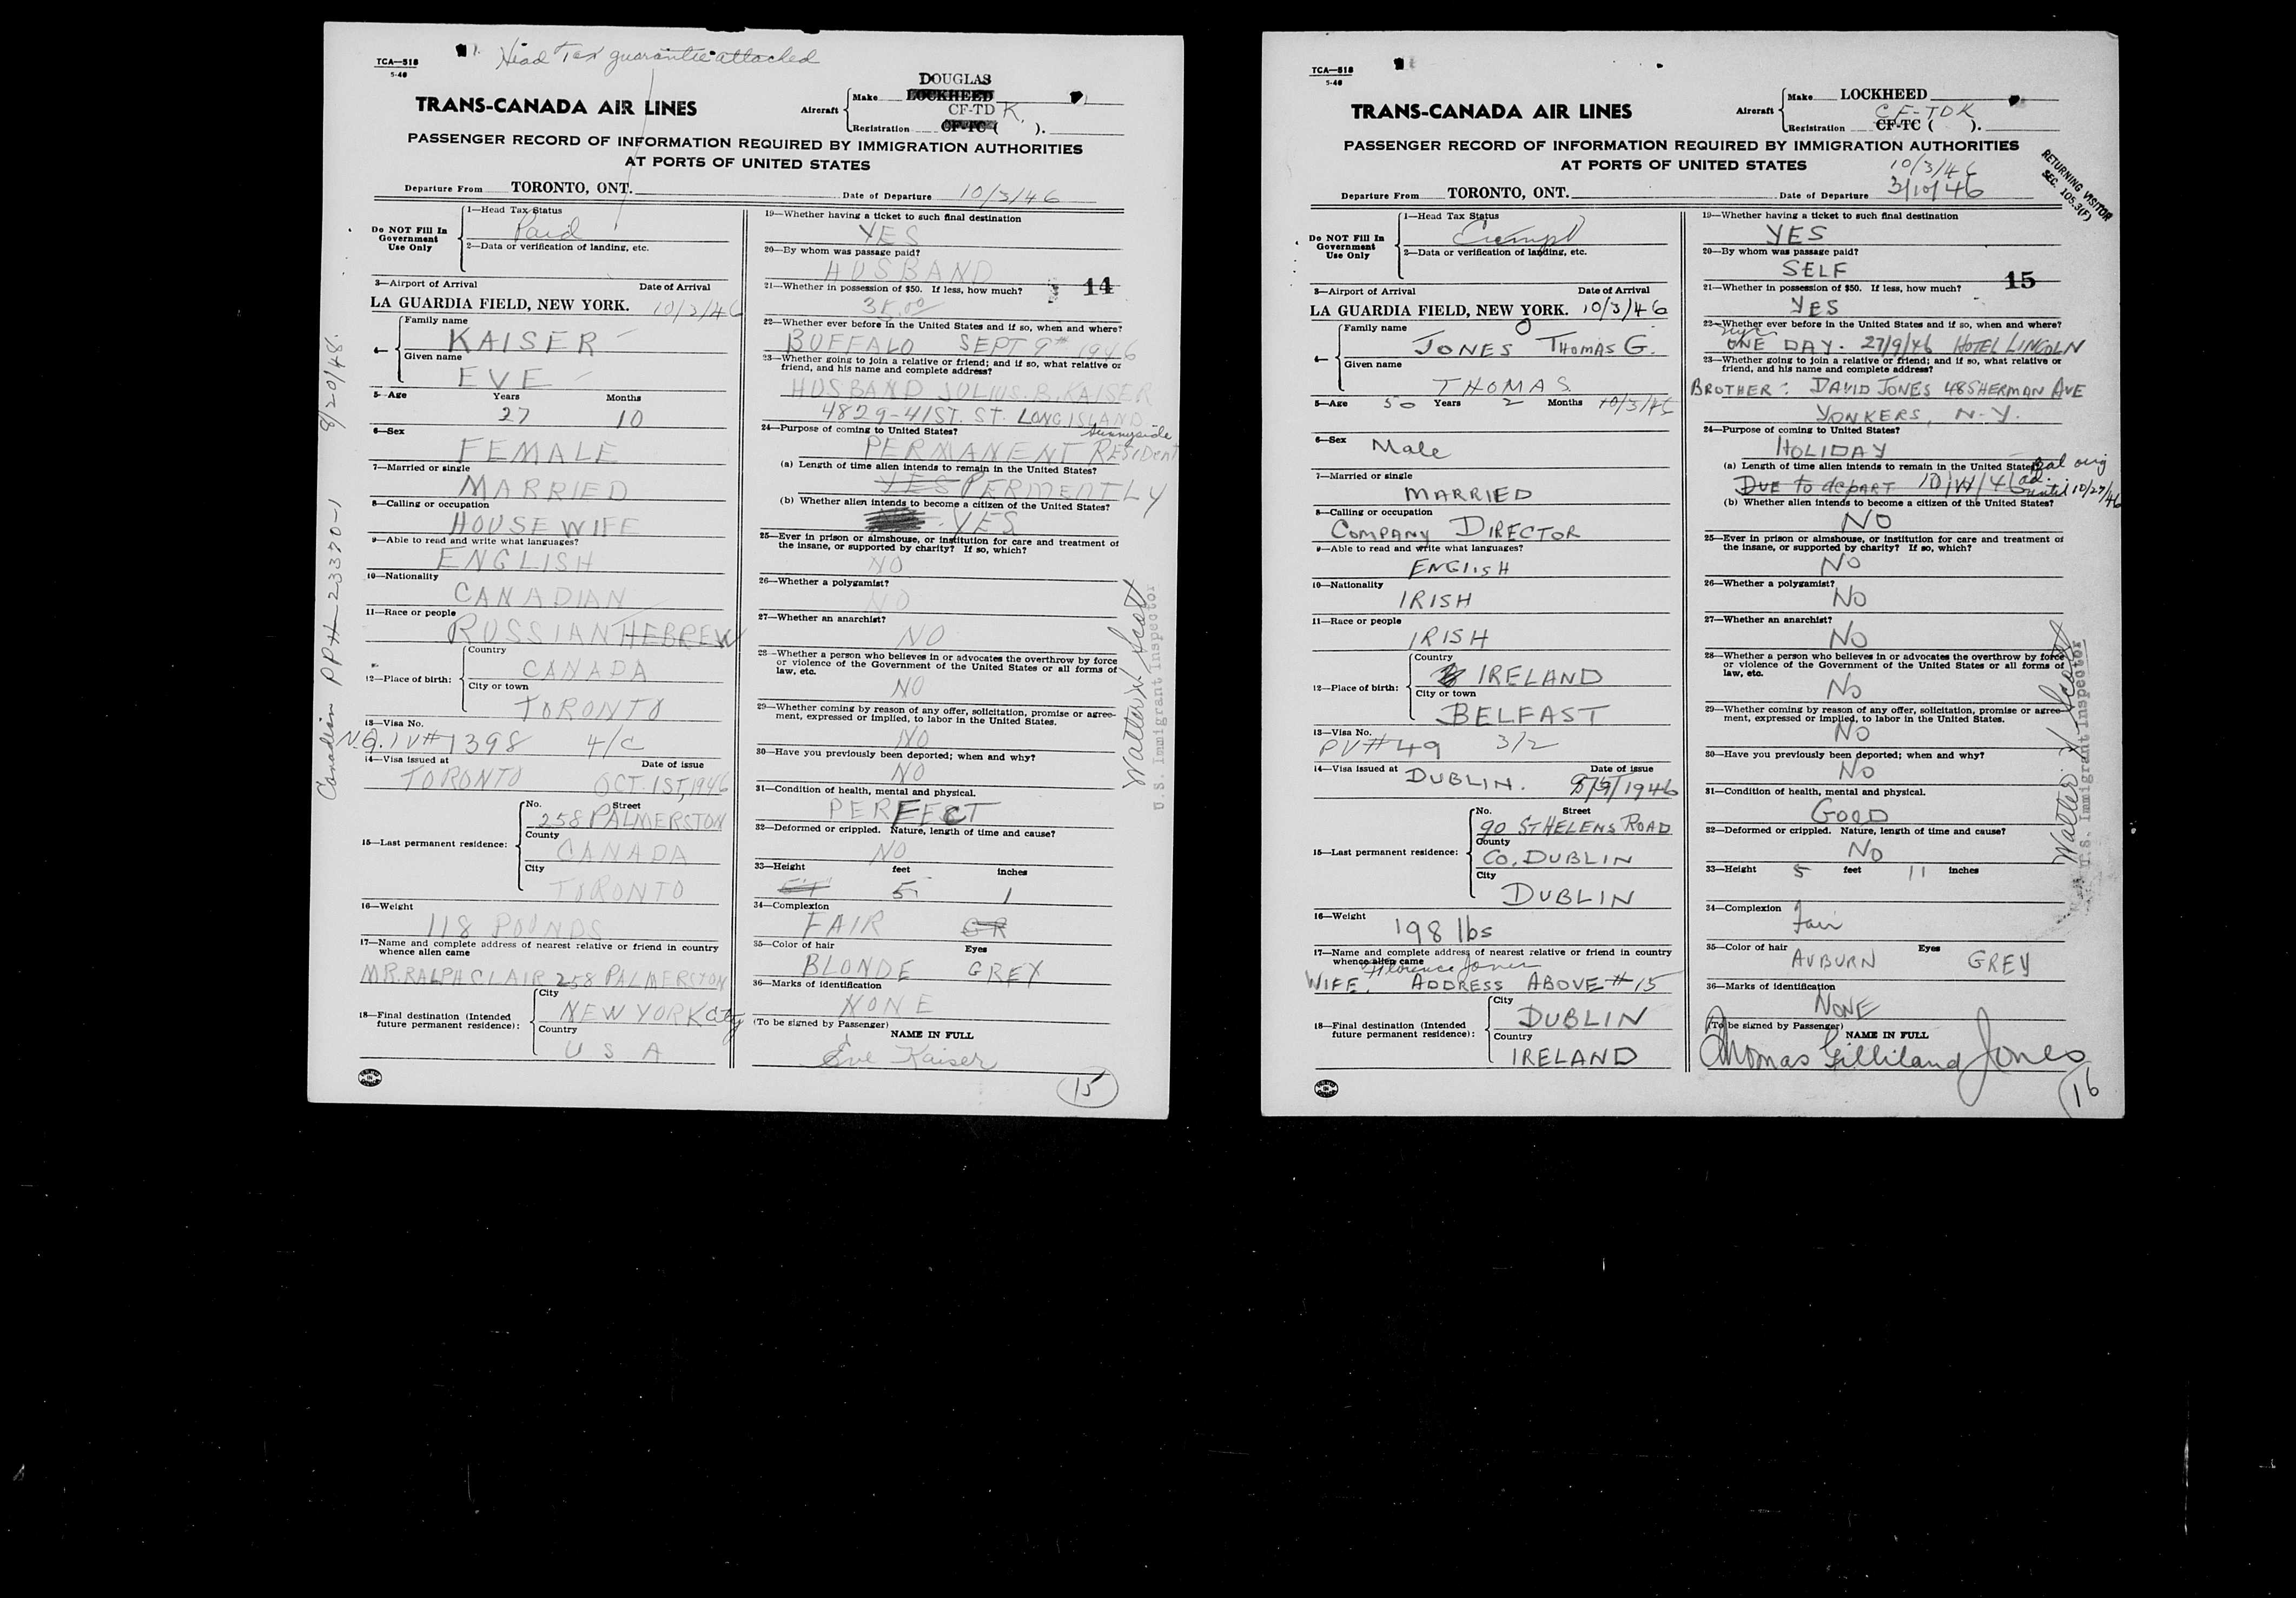 1. Head Tax guarantie attached
TCA—518
5-46
DOUGLAS
TRANS-CANADA AIR LINES
Aircraft
Make LOCKHEED
CF-TD K.
Registration CF-TC ( ).
PASSENGER RECORD OF INFORMATION REQUIRED BY IMMIGRATION AUTHORITIES
AT PORTS OF UNITED STATES
Departure From TORONTO, ONT.
Date of Departure 10/3/46
Do NOT Fill In
Government
Use Only
1—Head Tax Status
Paid
2—Data or verification of landing, etc.
3—Airport of Arrival Date of Arrival
LA GUARDIA FIELD, NEW YORK. 10/3/46
4—
Family name
KAISER
Given name
EVE
5—Age Years Months
27 10
6—Sex
FEMALE
7—Married or single
MARRIED
8—Calling or occupation
HOUSE WIFE
9—Able to read and write what languages?
ENGLISH
10—Nationality
CANADIAN
11—Race or people
RUSSIAN HEBREW
12—Place of birth:
Country
CANADA
City or town
TORONTO
13—Visa No.
N.Q.IV# 1398 4/C
14—Visa issued at Date of issue
TORONTO OCT. 1ST, 1946
15—Last permanent residence:
No. Street
258 PALMERSTON
County
CANADA
City
TORONTO
16—Weight
118 POUNDS
17—Name and complete address of nearest relative or friend in country
whence alien came
MR. RALPH CLAIR 258 PALMERSTON
18—Final destination (Intended
future permanent residence):
City
NEW YORK City
Country
U S A
Canadian PP# 23370-1 8/20/48
19—Whether having a ticket to such final destination
YES
20—By whom was passage paid?
HUSBAND
21—Whether in possession of $50. If less, how much?
14
35.00
22—Whether ever before in the United States and if so, when and where?
BUFFALO SEPT 9th 1946
23—Whether going to join a relative or friend; and if so, what relative or
friend, and his name and complete address?
HUSBAND JULIUS. B. KAISER
4829-41ST. ST. LONG ISLAND
Sunnyside
24—Purpose of coming to United States?
PERMANENT RESIDENT
(a) Length of time alien intends to remain in the United States?
YES PERMENTLY
(b) Whether alien intends to become a citizen of the United States?
YES
25—Ever in prison or almshouse, or institution for care and treatment of
the insane, or supported by charity? If so, which?
NO
26—Whether a polygamist?
NO
27—Whether an anarchist?
NO
28—Whether a person who believes in or advocates the overthrow by force
or violence of the Government of the United States or all forms of
law, etc.
NO
29—Whether coming by reason of any offer, solicitation, promise or agree-
ment, expressed or implied, to labor in the United States.
NO
30—Have you previously been deported; when and why?
NO
31—Condition of health, mental and physical.
PERFECT
32—Deformed or crippled. Nature, length of time and cause?
NO
33—Height feet inches
5 1
34—Complexion
FAIR GR
35—Color of hair Eyes
BLONDE GREY
36—Marks of identification
NONE
(To be signed by Passenger) NAME IN FULL
Eve Kaiser
15
Walter Scott
U.S. Immigrant Inspector
TCA—518
5-46
TRANS-CANADA AIR LINES
Aircraft
Make LOCKHEED
CF-TDK
Registration CF-TC ( ).
PASSENGER RECORD OF INFORMATION REQUIRED BY IMMIGRATION AUTHORITIES
AT PORTS OF UNITED STATES
10/3/46
Departure From TORONTO, ONT.
Date of Departure 3/10/46
RETURNING VISITOR
SEC. 105.3(F)
Do NOT Fill In
Government
Use Only
1—Head Tax Status
Exempt
2—Data or verification of landing, etc.
3—Airport of Arrival Date of Arrival
LA GUARDIA FIELD, NEW YORK. 10/3/46
4—
Family name
JONES THOMAS G.
Given name
THOMAS
5—Age 50 Years 2 Months 10/3/46
6—Sex
Male
7—Married or single
MARRIED
8—Calling or occupation
COMPANY DIRECTOR
9—Able to read and write what languages?
ENGLISH
10—Nationality
IRISH
11—Race or people
IRISH
12—Place of birth:
Country
IRELAND
City or town
BELFAST
13—Visa No.
PV# 49 3/2
14—Visa issued at Date of issue
DUBLIN. 5/9/1946
15—Last permanent residence:
No. Street
90 ST HELENS ROAD
County
CO. DUBLIN
City
DUBLIN
16—Weight
198 lbs
17—Name and complete address of nearest relative or friend in country
whence alien came
Florence Jones
WIFE. ADDRESS ABOVE # 15
18—Final destination (Intended
future permanent residence):
City
DUBLIN
Country
IRELAND
19—Whether having a ticket to such final destination
YES
20—By whom was passage paid?
SELF
15
21—Whether in possession of $50. If less, how much?
YES
22—Whether ever before in the United States and if so, when and where?
nyc
ONE DAY. 27/9/46 HOTEL LINCOLN
23—Whether going to join a relative or friend; and if so, what relative or
friend, and his name and complete address?
BROTHER: DAVID JONES 48 SHERMAN AVE
YONKERS, N.Y.
24—Purpose of coming to United States?
HOLIDAY
(a) Length of time alien intends to remain in the United States?
bal orig
DUE to depart ad
until 10/27/46
(b) Whether alien intends to become a citizen of the United States?
NO
25—Ever in prison or almshouse, or institution for care and treatment of
the insane, or supported by charity? If so, which?
No
26—Whether a polygamist?
No
27—Whether an anarchist?
No
28—Whether a person who believes in or advocates the overthrow by force
or violence of the Government of the United States or all forms of
law, etc.
No
29—Whether coming by reason of any offer, solicitation, promise or agree-
ment, expressed or implied, to labor in the United States.
No
30—Have you previously been deported; when and why?
No
31—Condition of health, mental and physical.
GOOD
32—Deformed or crippled. Nature, length of time and cause?
No
33—Height 5 feet 11 inches
34—Complexion
Fair
35—Color of hair Eyes
AUBURN GREY
36—Marks of identification
NONE
(To be signed by Passenger) NAME IN FULL
Thomas Gilliland Jones
16
Walter Scott
U.S. Immigrant Inspector